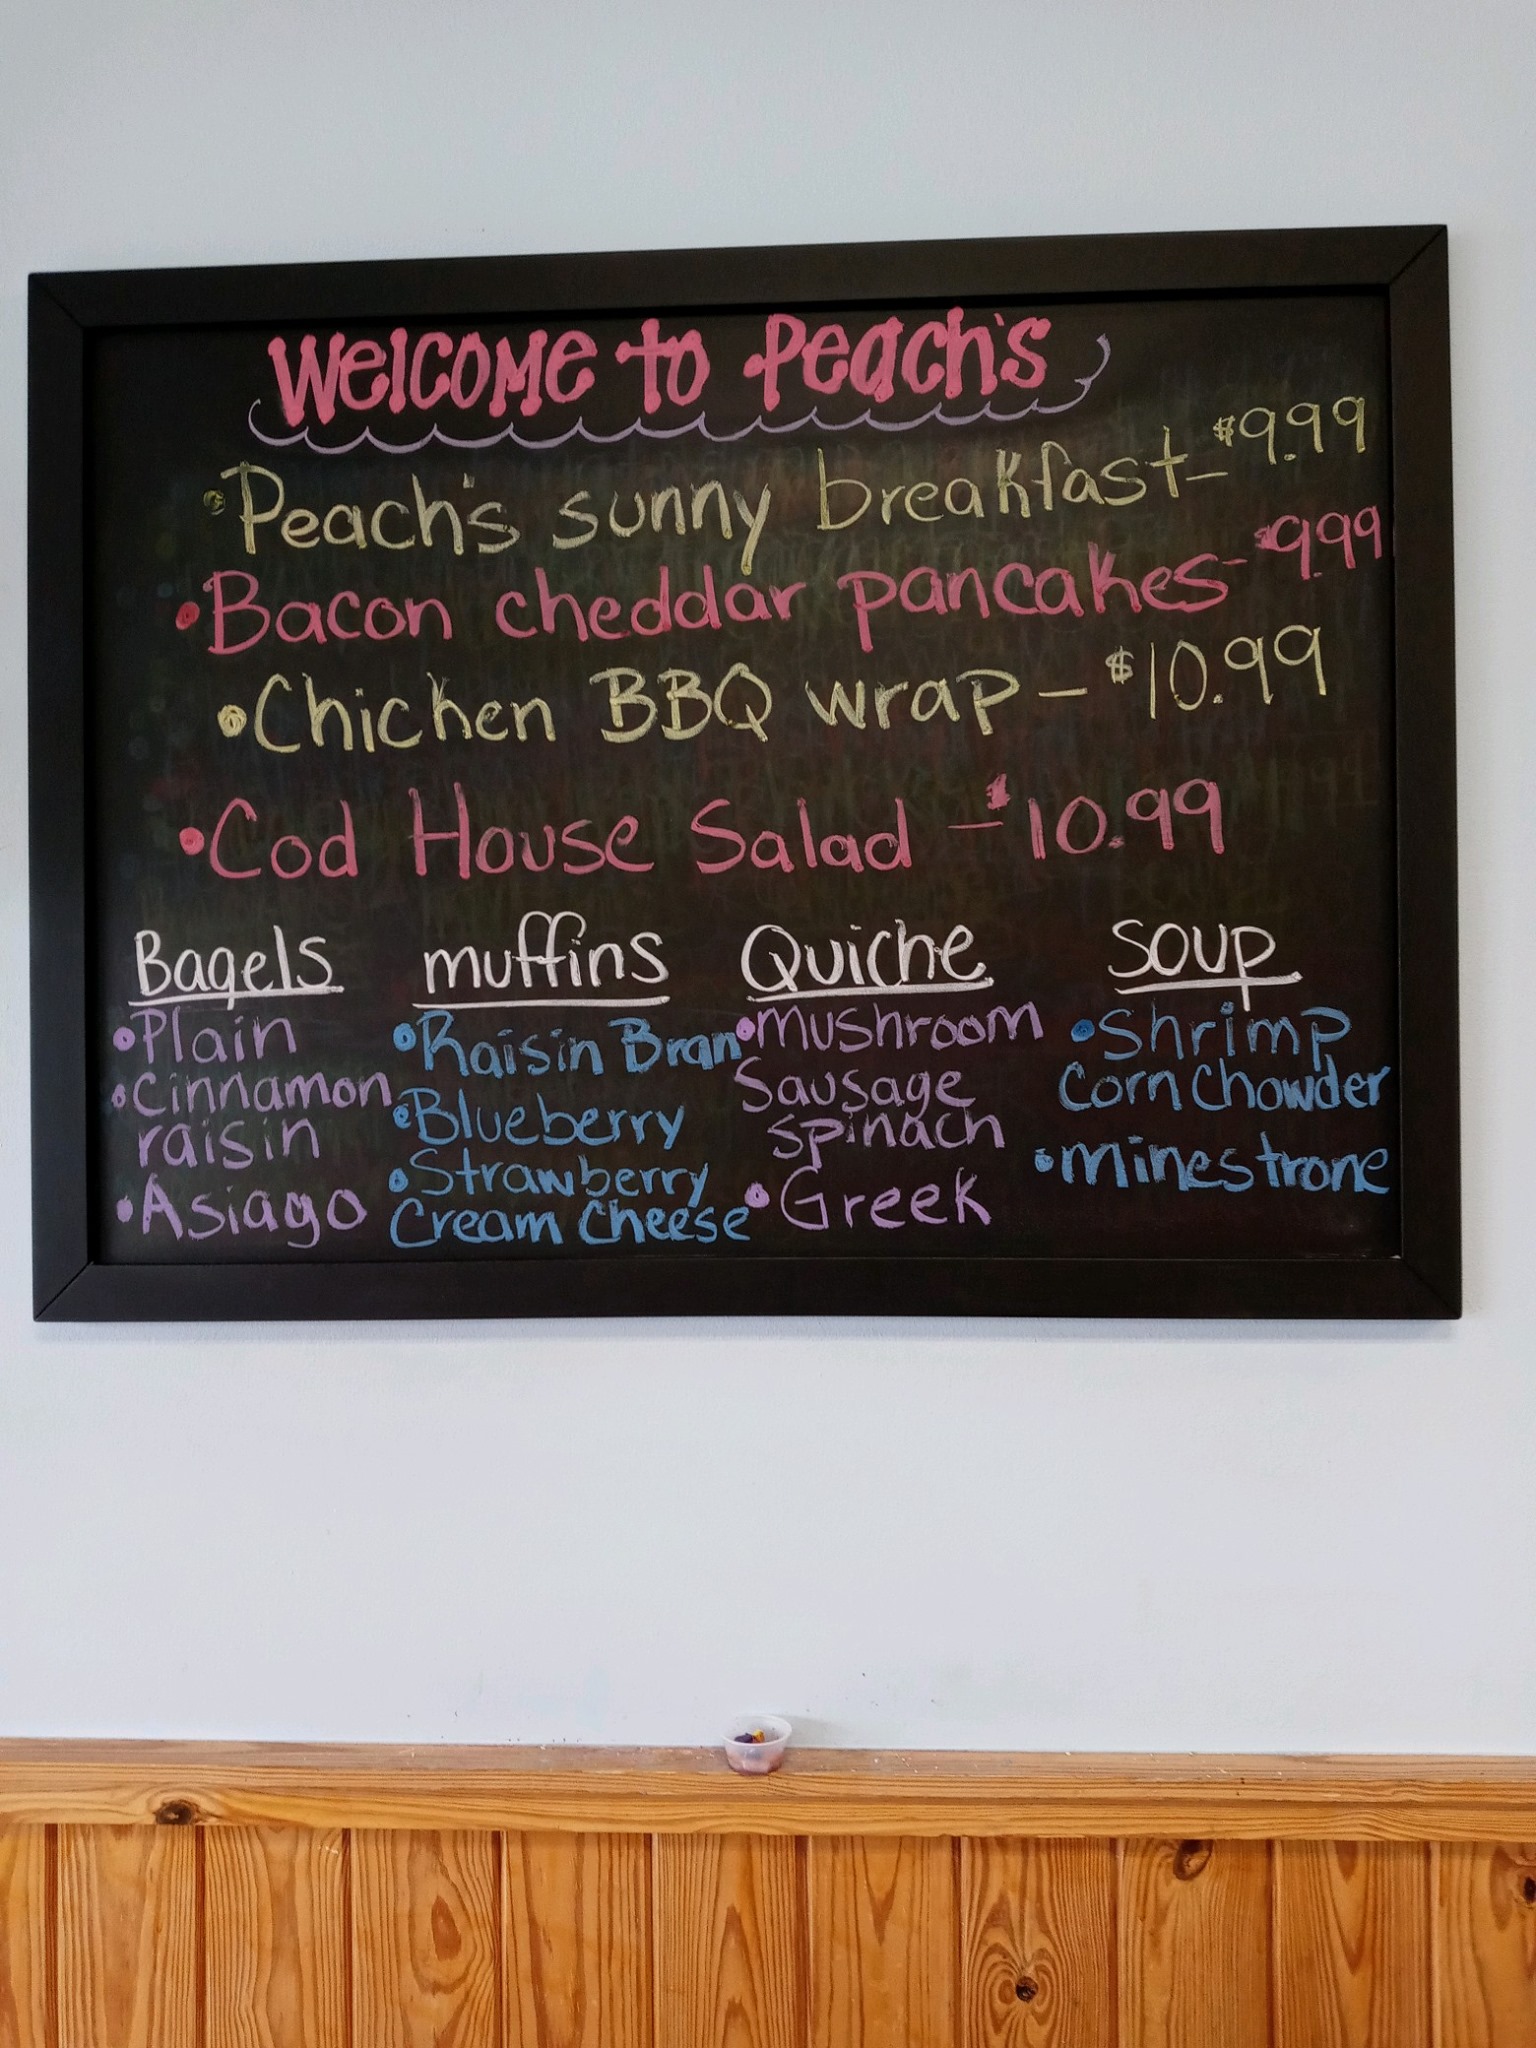 Welcome to Peach's
• Peach's sunny breakfast - $9.99
• Bacon cheddar pancakes - $9.99
• Chicken BBQ wrap - $10.99
• Cod House Salad - $10.99
Bagels
• Plain
• Cinnamon
raisin
• Asiago
muffins
• Raisin Bran
• Blueberry
• Strawberry
Cream Cheese
Quiche
• Mushroom
Sausage
spinach
• Greek
Soup
• Shrimp
Corn Chowder
• Minestrone